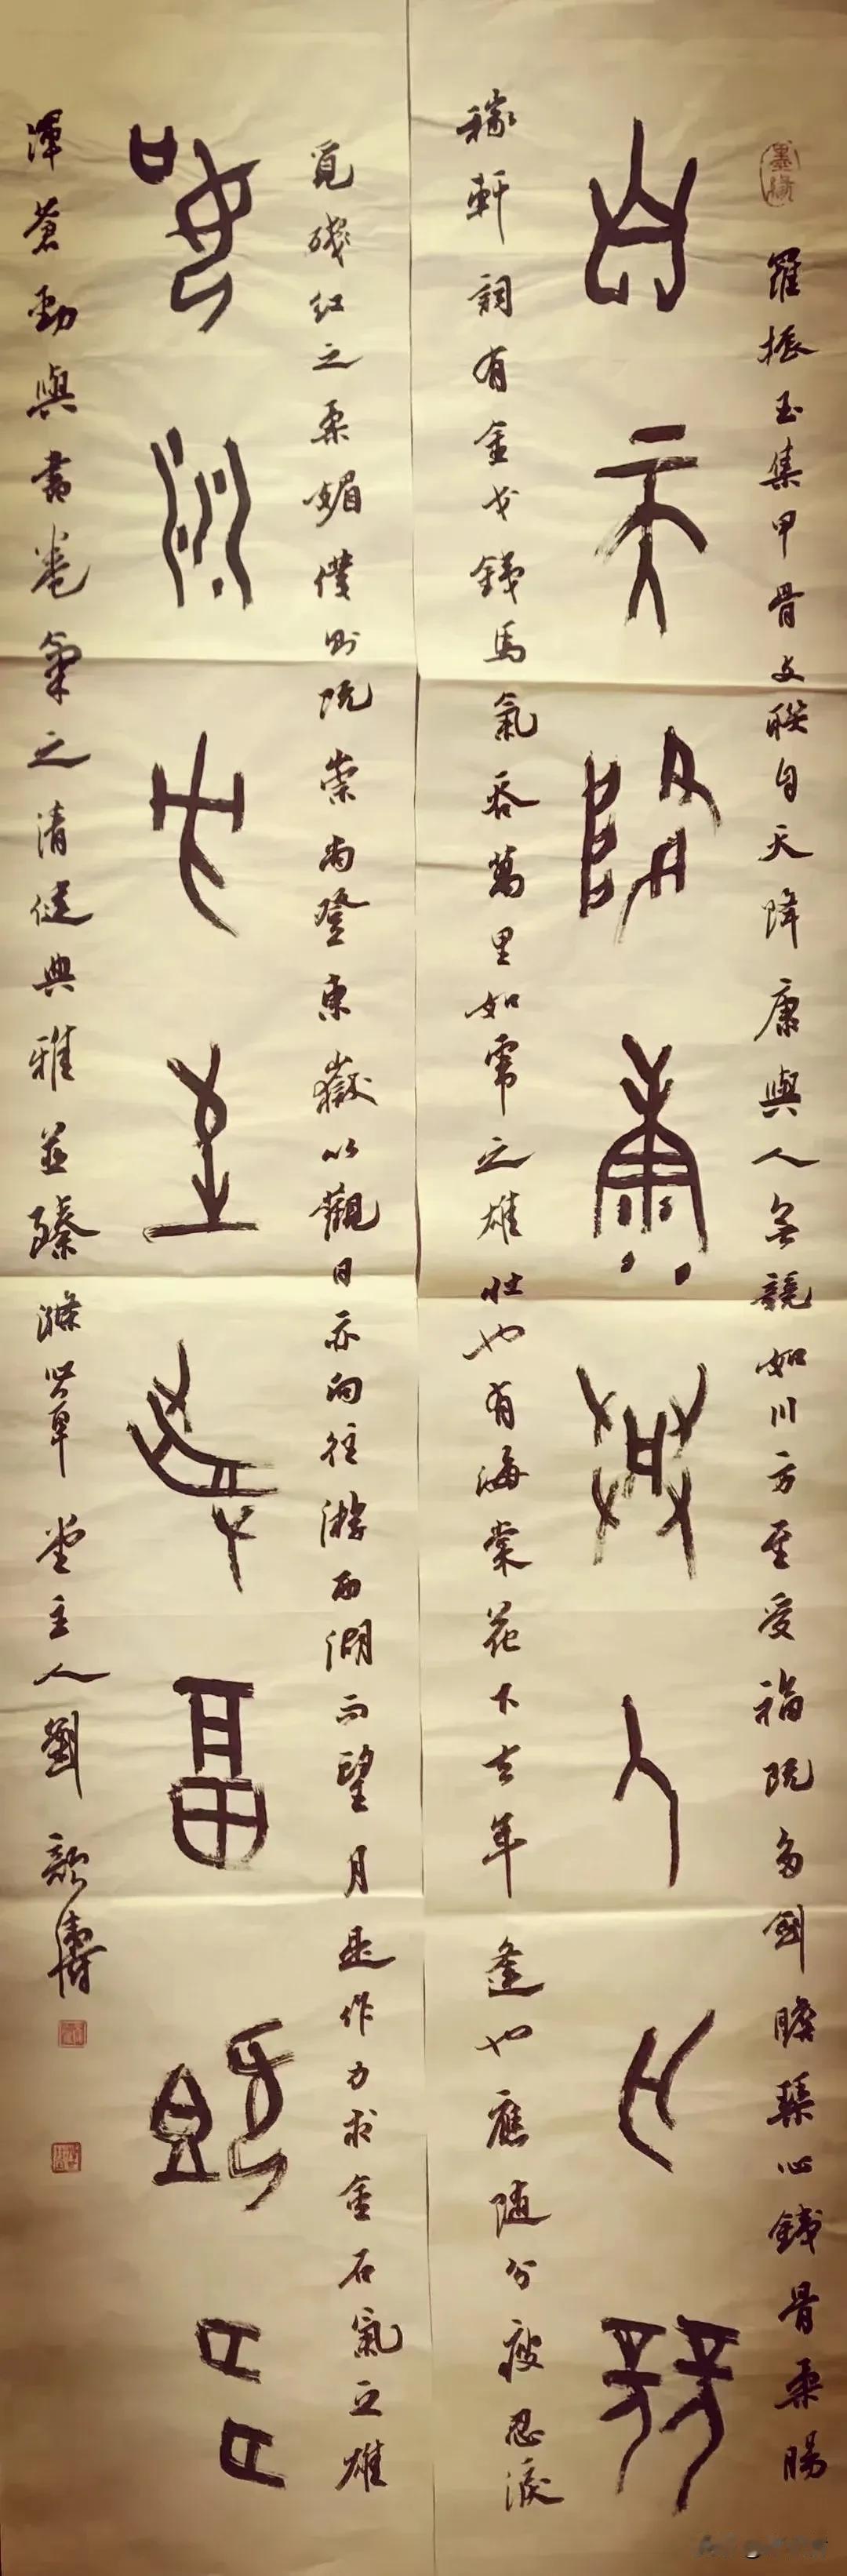 墨緣
羅振玉集甲骨文聯自天降康與人無競如川方至受福既多劍膽琴心鐵骨柔腸
自天降康與人亡競
稼軒詞有金戈鐵馬氣吞萬里如虎之雄壯也有海棠花下去年逢也應隨分瘦忍淚
覓殘紅之柔媚僕則既崇尚登東嶽以觀日亦向往游西湖而望月是作力求金石氣之雄
如川方至受福既多
渾蒼勁與書卷氣之清健典雅並臻滌草堂主人劉顏濤